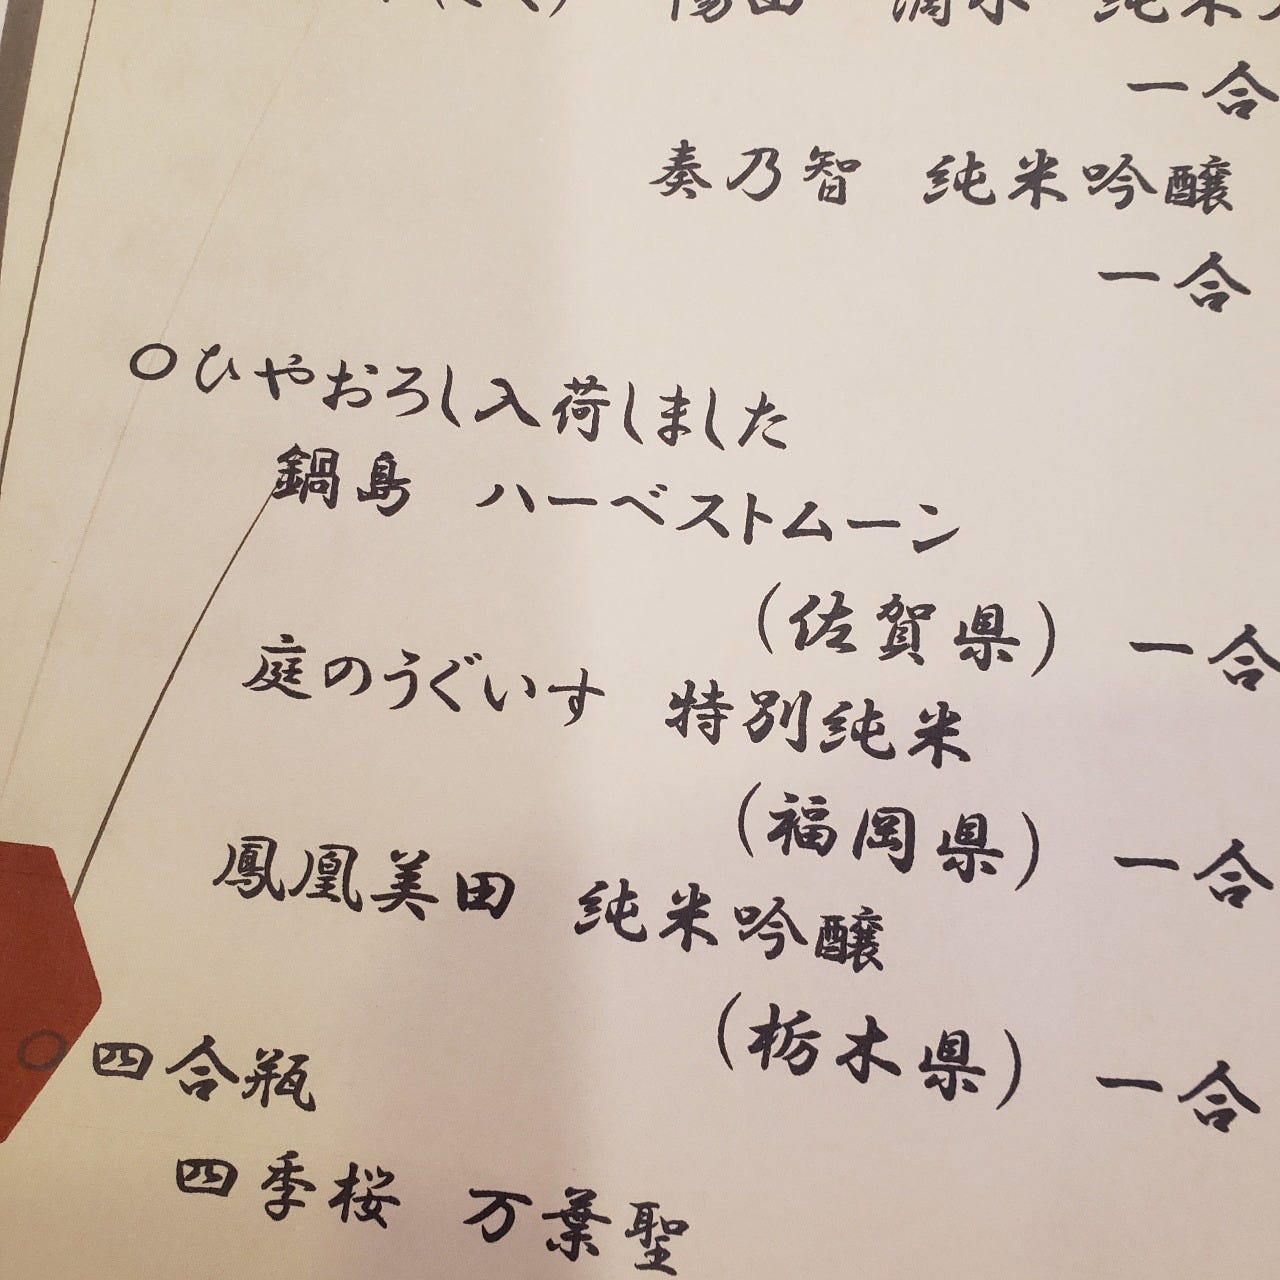 純米
一合
奏乃智 純米吟醸
一合
○ひやおろし入荷しました
鍋島 ハーベストムーン
(佐賀県) 一合
庭のうぐいす 特別純米
(福岡県) 一合
鳳凰美田 純米吟醸
(栃木県) 一合
○四合瓶
四季桜 万葉聖